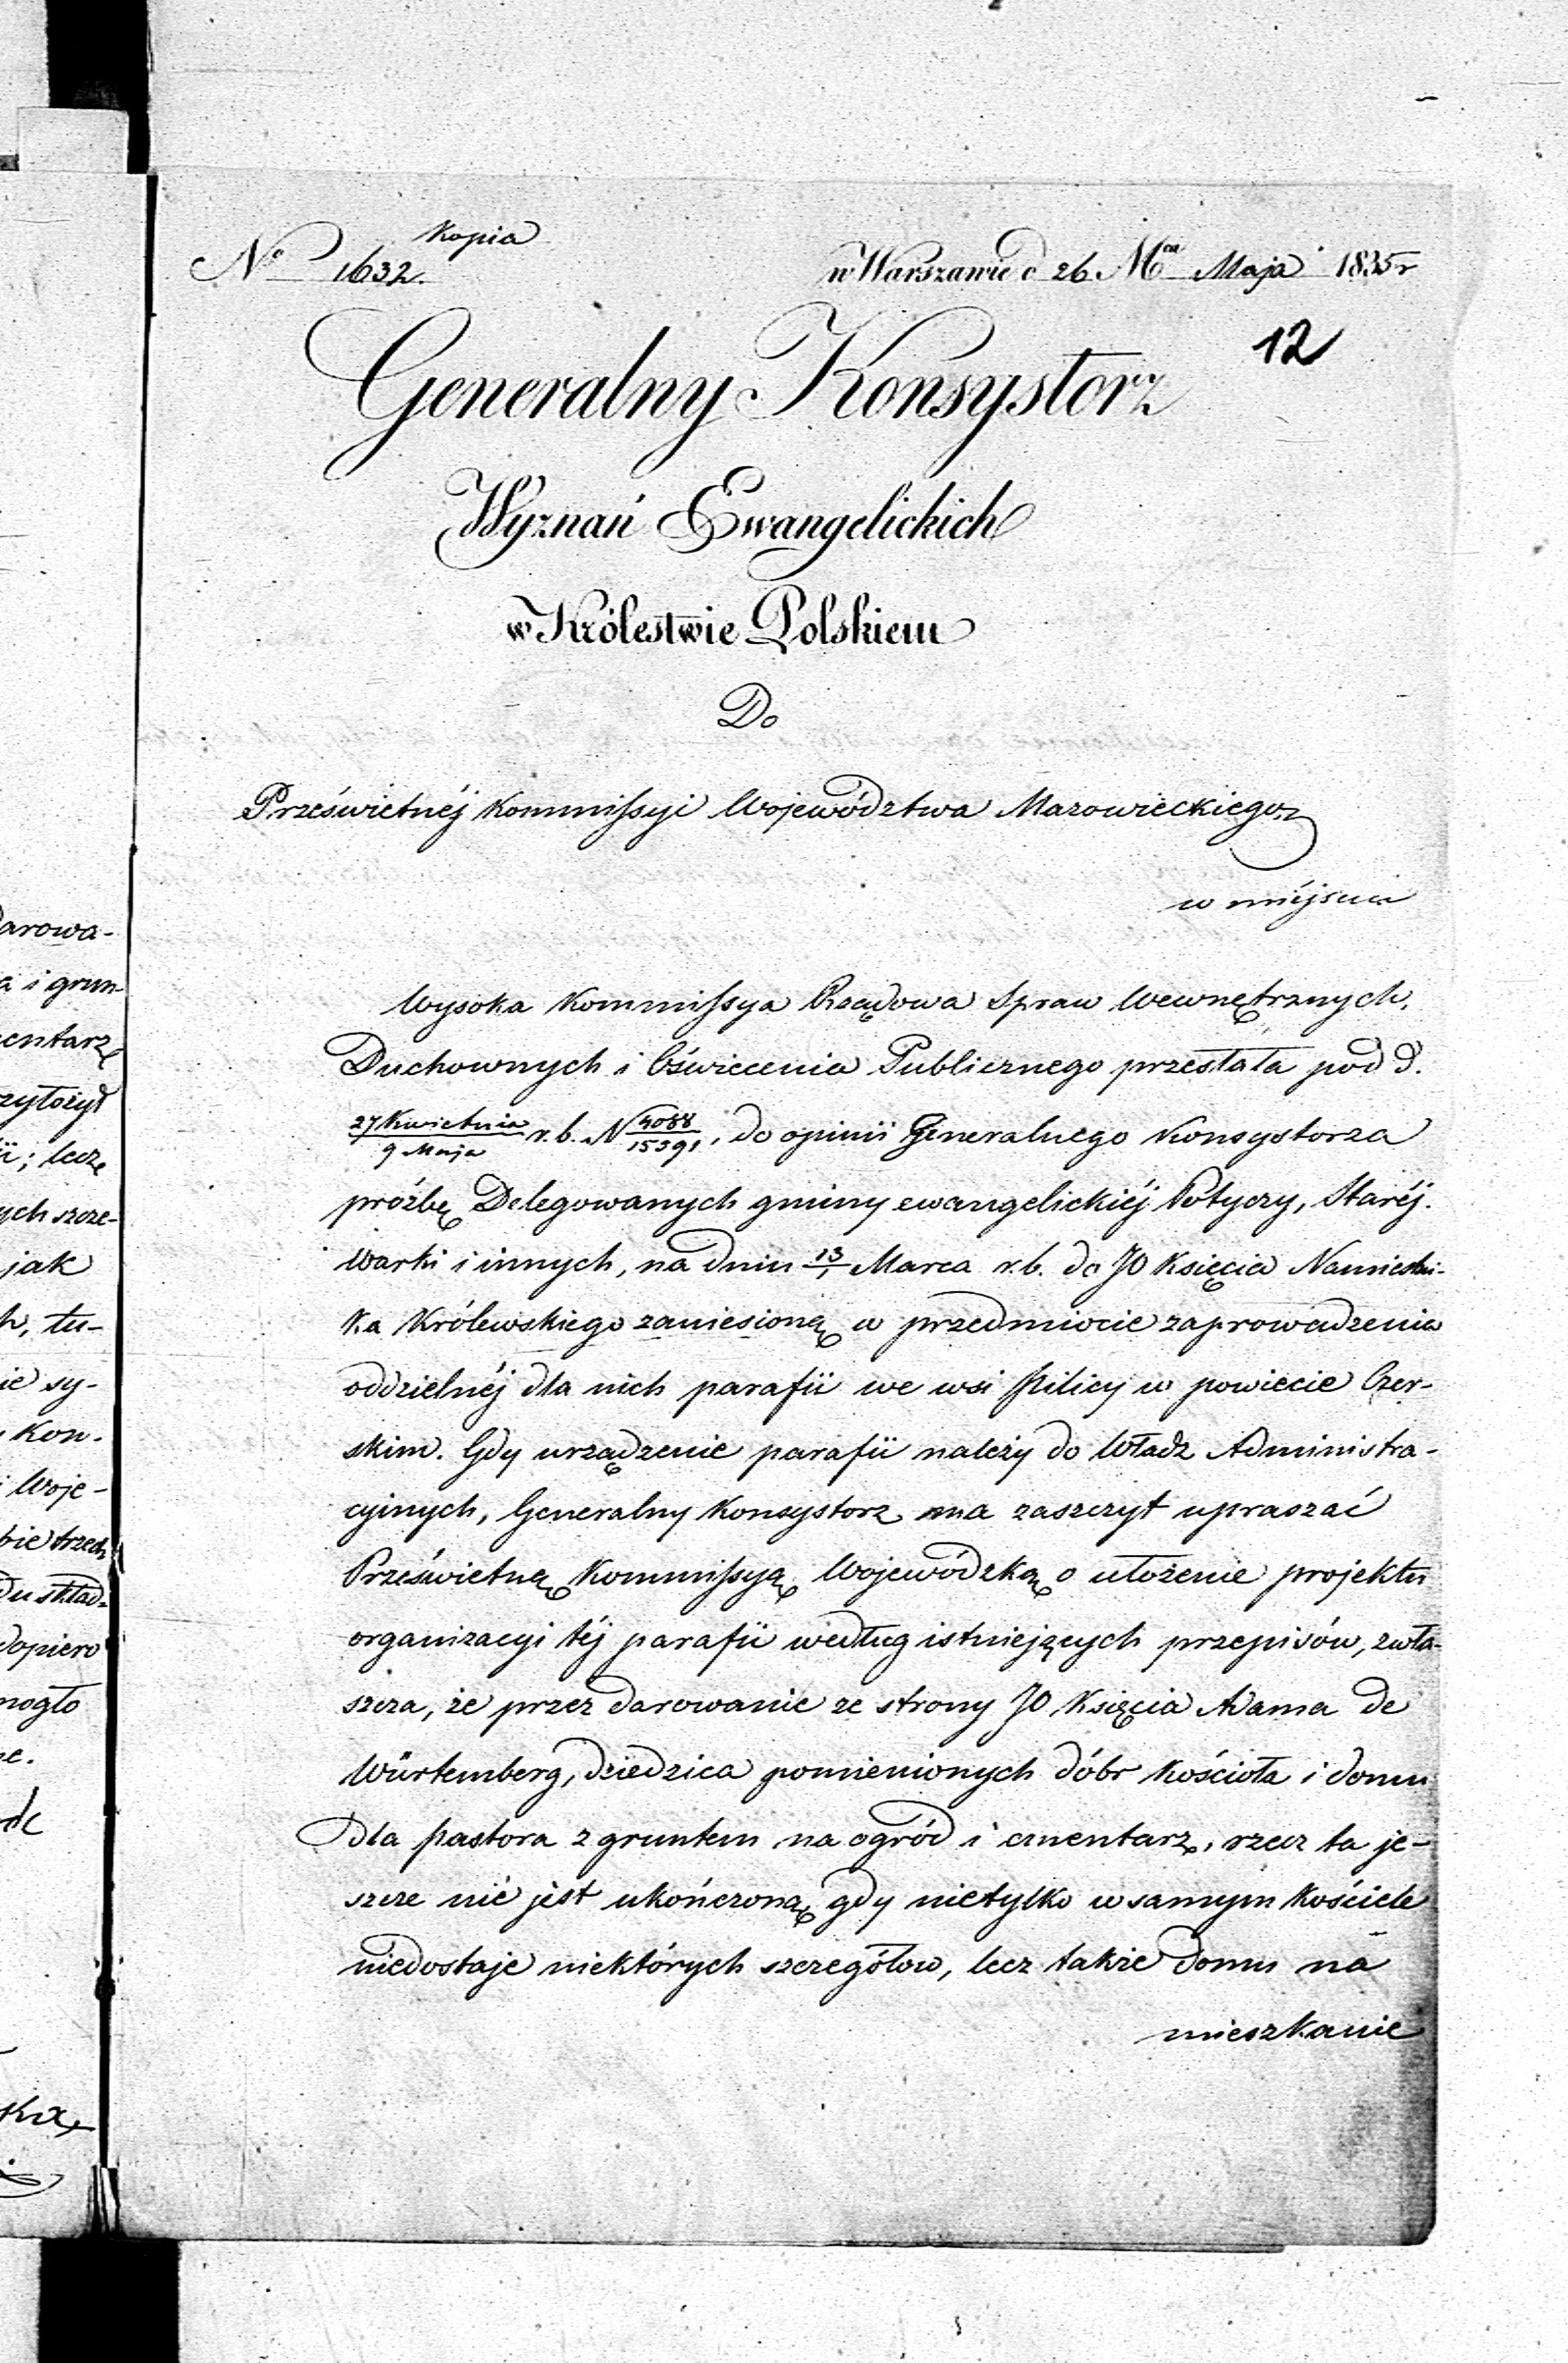 arowa-
a i grun-
entarz
zyłożył
ii; lecz
ych szcze-
jak
h, tu-
ie sy-
Kon-
i Woje-
bie trzech
du skład-
dopiero
mogło
ska
Kopia
No 1632.
w Warszawie d 26 Mca Maja 1835r
12
Generalny Konsystorz
Wyznań Ewangelickich
w Królestwie Polskiem
Do
Prześwietnéj Kommissyi Województwa Mazowieckiego,
w miéjscu
Wysoka Kommissya Rządowa Spraw Wewnętrznych,
Duchownych i Oświecenia Publicznego przesłała pod d.
27 Kwietnia/9 Maja r.b. N 4088/15391, do opinii Generalnego Konsystorza
próźbę Delegowanych gminy ewangelickiéj Potyczy, Staréj-
Warki i innych, na dniu 13/1 Marca r.b. do JO Księcia Namiestni-
ka Królewskiego zaniesioną w przedmiocie zaprowadzenia
oddzielnéj dla nich parafii we wsi Pilicy w powiecie Czer-
skim. Gdy urządzenie parafii należy do Władz Administra-
cyinych, Generalny Konsystorz ma zaszczyt upraszać
Prześwietną Kommissyą Wojewódzką o ułożenie projektu
organizacyi téj parafii według istniejących przepisów, zwła-
szcza, że przez darowanie ze strony JO Księcia Adama de
Würtemberg, dziedzica pomienionych dóbr kościoła i domu
dla pastora z gruntem na ogród i cmentarz, rzecz ta je-
szcze nie jest ukończoną gdy nietylko w samym Kościele
niedostaje niektórych szczegółow, lecz także domu na
mieszkanie